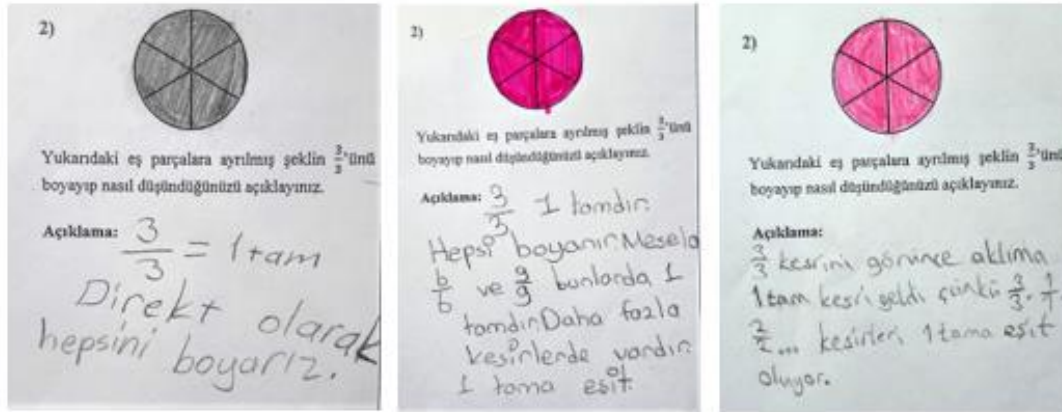 2)
Yukarıdaki eş parçalara ayrılmış şeklin 3/3'ünü
boyayıp nasıl düşündüğünüzü açıklayınız.
Açıklama: 3/3 = 1 tam
Direkt olarak
hepsini boyarız.
2)
Yukarıdaki eş parçalara ayrılmış şeklin 3/3'ünü
boyayıp nasıl düşündüğünüzü açıklayınız.
Açıklama: 3/3 1 tamdır.
Hepsi boyanır. Mesela
6/6 ve 9/9 bunlarda 1
tamdır. Daha fazla
kesirlerde vardır.
1 tama eşit.
2)
Yukarıdaki eş parçalara ayrılmış şeklin 3/3'ünü
boyayıp nasıl düşündüğünüzü açıklayınız.
Açıklama:
3/3 kesrini görünce aklıma
1 tam kesri geldi çünkü 3/3, 1/1
2/2 ... kesirleri 1 tama eşit
oluyor.